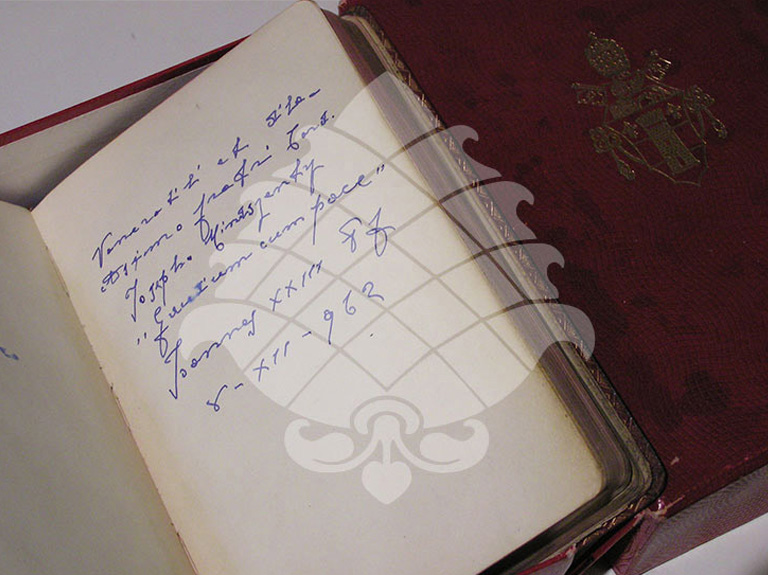 Venerabili et dile-
ctissimo fratri Card.
Joseph. Mindszenty
"Gaudium cum pace"
Joannes XXIII pp
8 - XII - 962